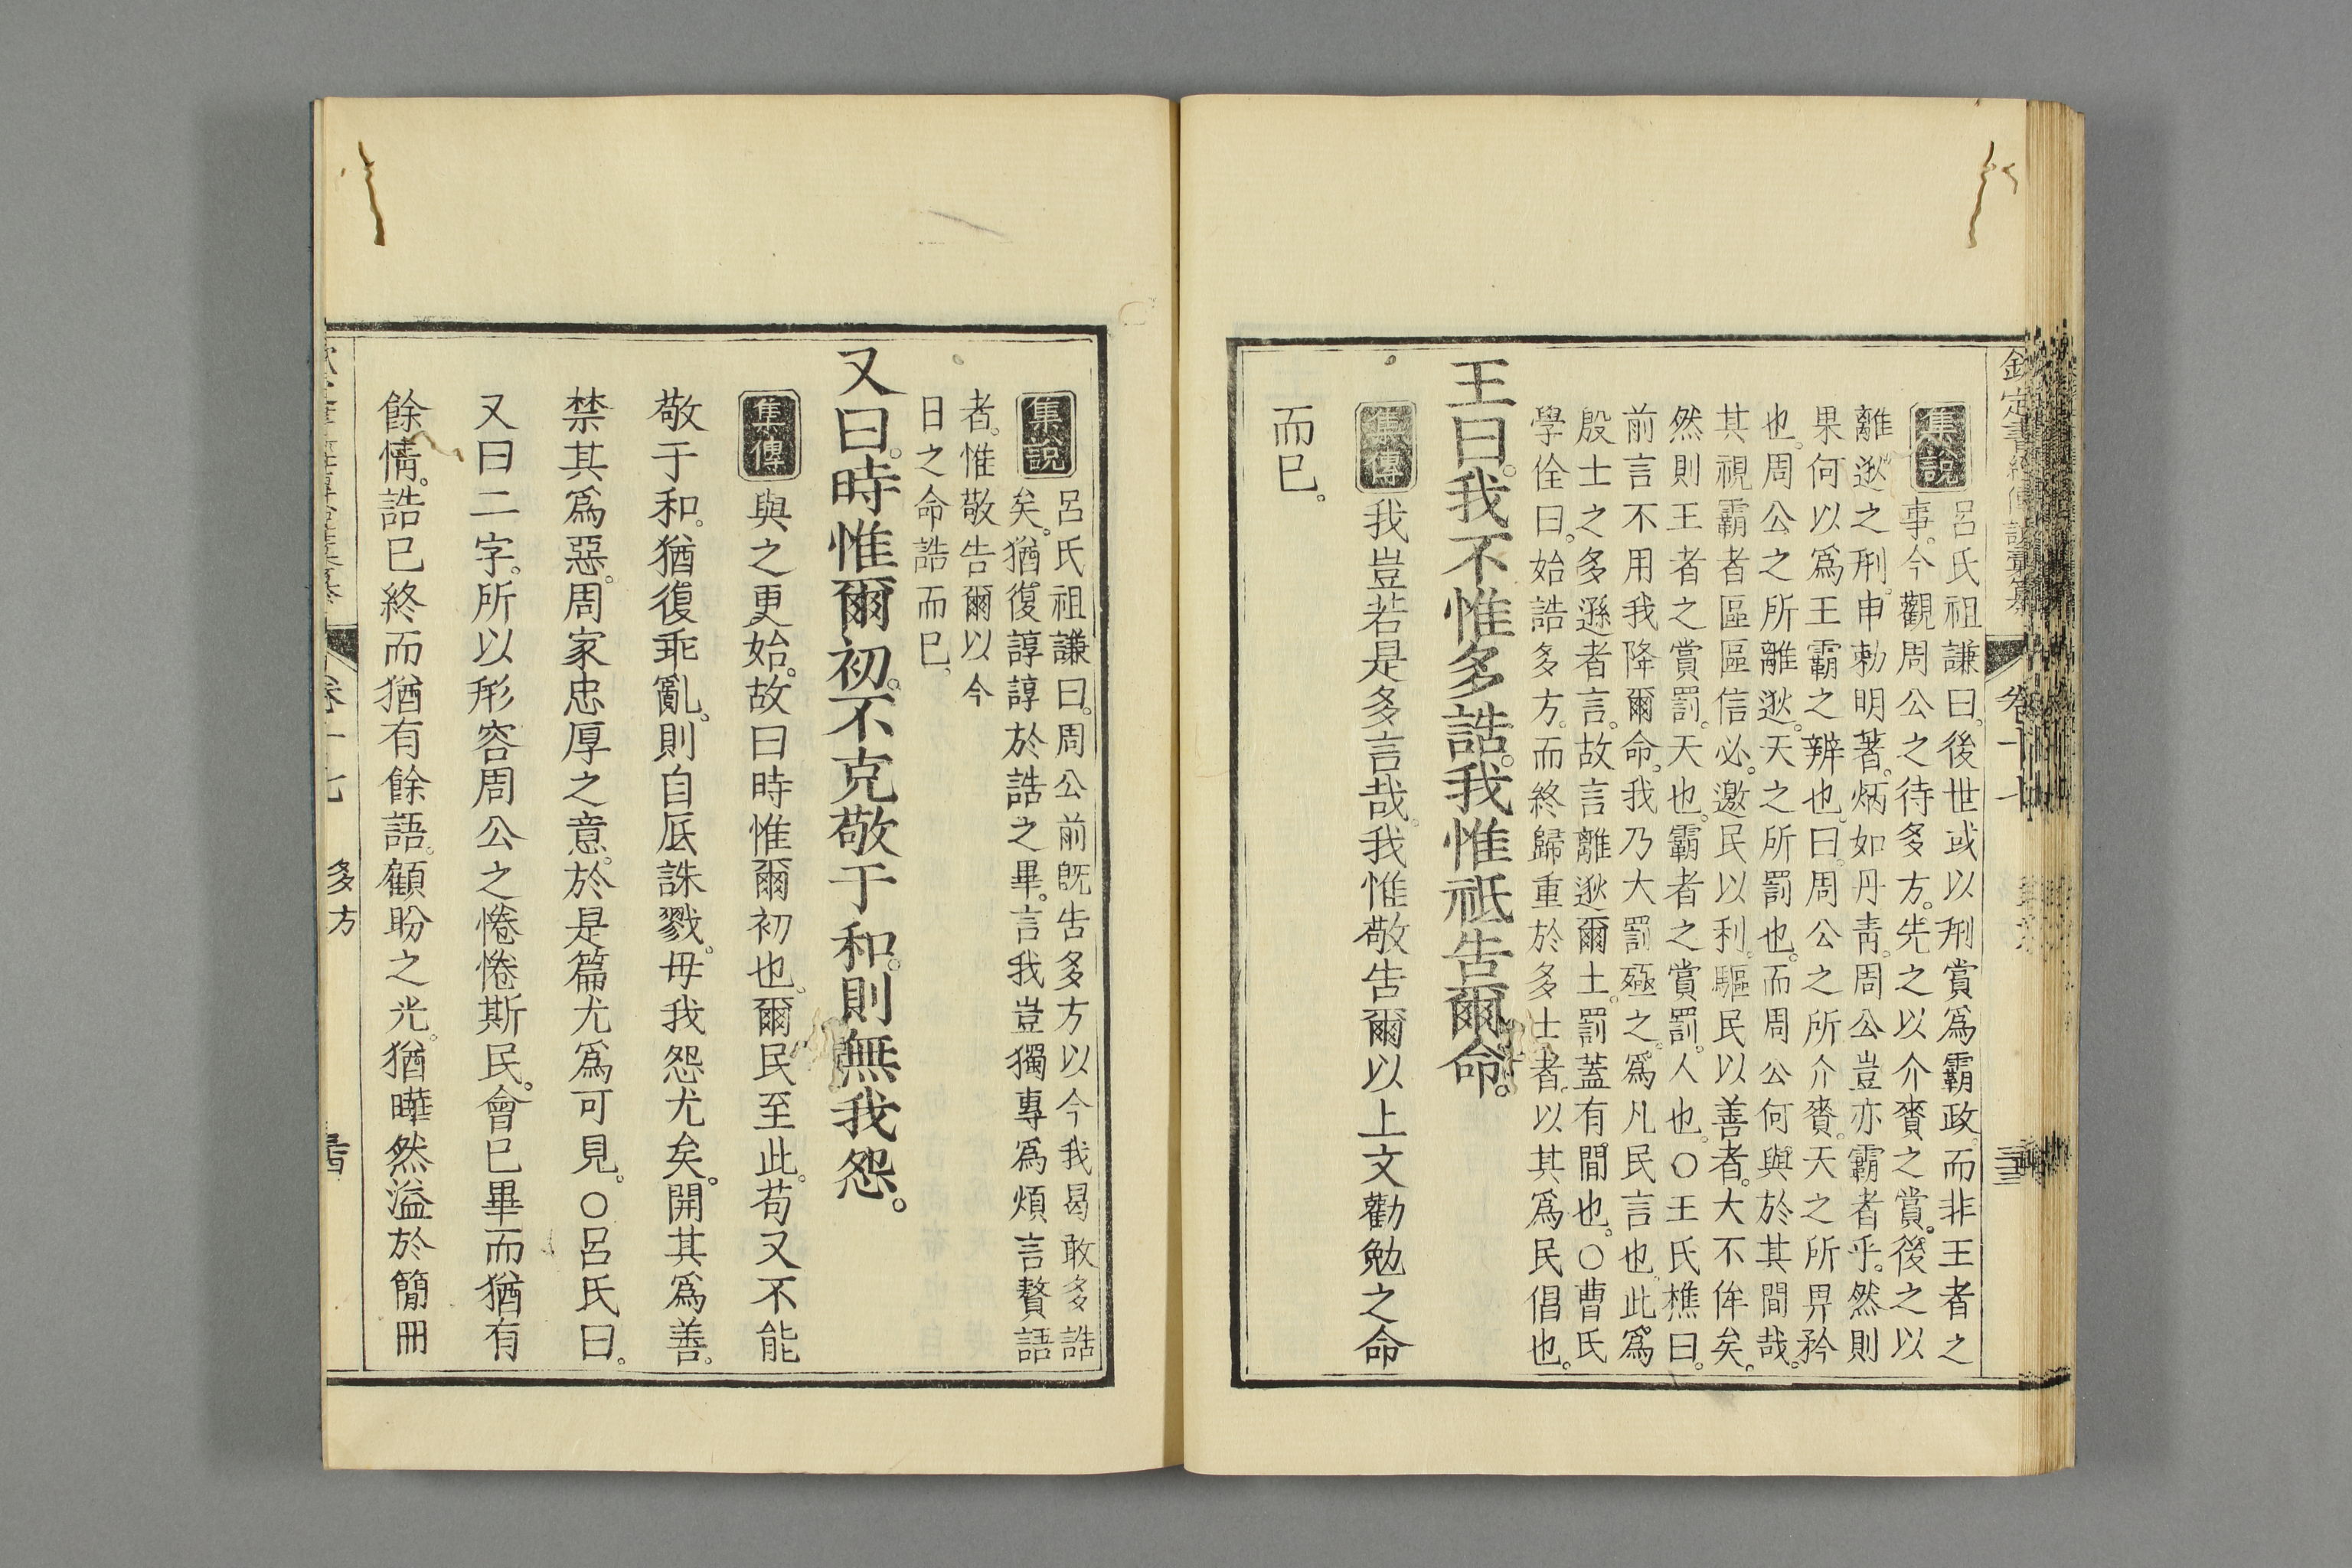 欽定書經傳說彙纂 卷十七
集說 呂氏祖謙曰。後世或以刑賞爲霸政。而非王者之
事。今觀周公之待多方。先之以介賚之賞。後之以
離逖之刑。申勅明著。炳如丹靑。周公豈亦霸者乎。然則
果何以爲王霸之辨也。曰。周公之所介賚。天之所畀矜
也。周公之所離逖。天之所罰也。而周公何與於其間哉。
其視霸者區區信必。邀民以利。驅民以善者。大不侔矣。
然則王者之賞罰。天也。霸者之賞罰。人也。○王氏樵曰。
前言不用我降爾命。我乃大罰殛之。爲凡民言也。此爲
殷士之多遜者言。故言離逖爾土。罰蓋有閒也。○曹氏
學佺曰。始誥多方。而終歸重於多士者。以其爲民倡也。
王曰。我不惟多誥。我惟祗告爾命。
集傳 我豈若是多言哉。我惟敬告爾以上文勸勉之命
而已。
集說 呂氏祖謙曰。周公前旣告多方以今我曷敢多誥
矣。猶復諄諄於誥之畢。言我豈獨專爲煩言贅語
者。惟敬告爾以今
日之命誥而已。
又曰。時惟爾初。不克敬于和。則無我怨。
集傳 與之更始。故曰時惟爾初也。爾民至此。苟又不能
敬于和。猶復乖亂。則自厎誅戮。毋我怨尤矣。開其爲善。
禁其爲惡。周家忠厚之意。於是篇尤爲可見。○呂氏曰。
又曰二字。所以形容周公之惓惓斯民。會已畢而猶有
餘情。誥已終而猶有餘語。顧盼之光。猶曄然溢於簡冊
卷十七 多方